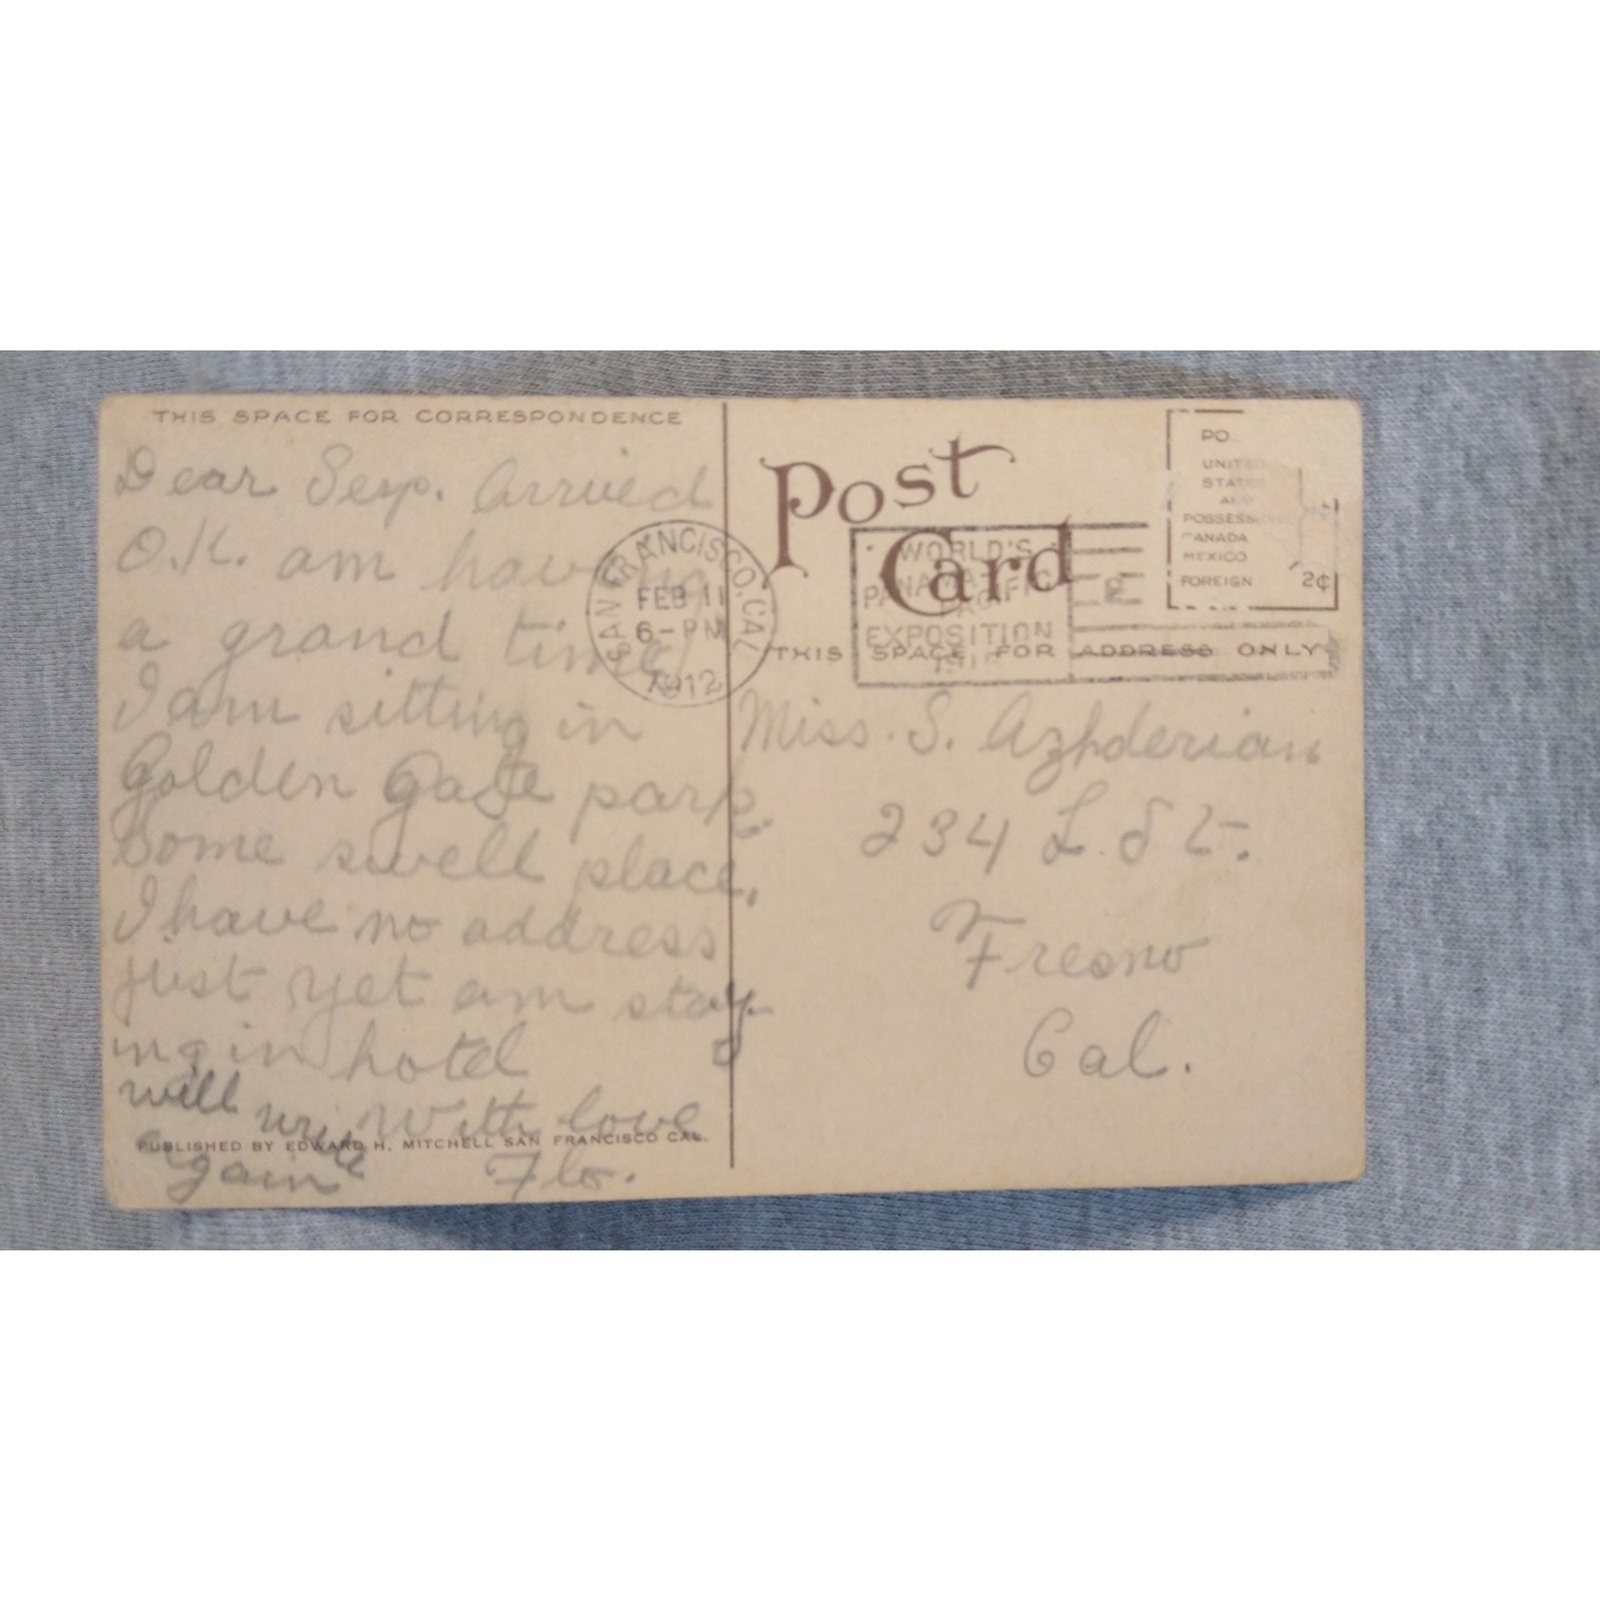 THIS SPACE FOR CORRESPONDENCE
Dear Serp. Arrived
O.K. am having
a grand time
I am sitting in
Golden Gate park.
Some swell place.
I have no address
just yet am stay-
ing in hotel
will write With love
again Flo.
PUBLISHED BY EDWARD H. MITCHELL SAN FRANCISCO CAL.
SAN FRANCISCO, CAL.
FEB 11
6-PM
1912
Post
Card
WORLD'S
PANAMA-PACIFIC
EXPOSITION
THIS SPACE FOR ADDRESS ONLY
PO
UNITED
STATES
AND
POSSESSIONS
CANADA
MEXICO
FOREIGN 2¢
Miss. S. Azhderian
234 L. St.
Fresno
Cal.